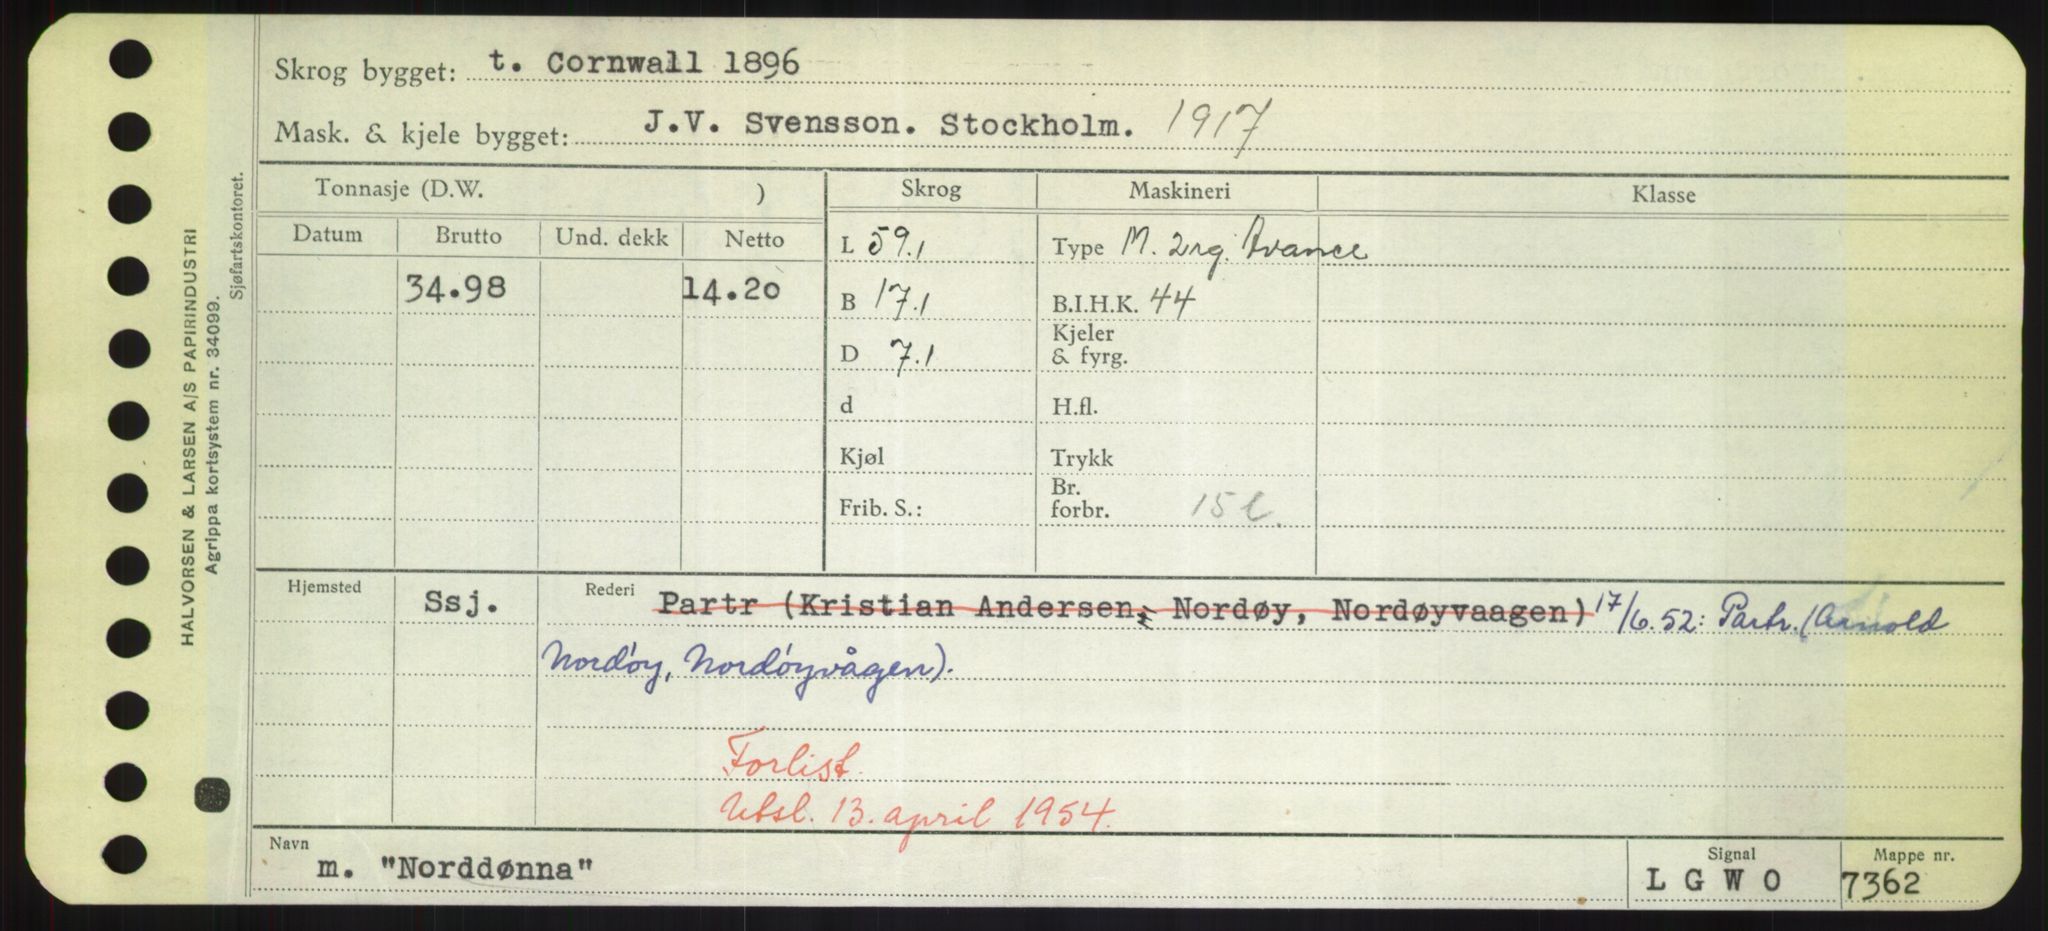 Skrog bygget: t. Cornwall 1896
Mask. & kjele bygget: J.V. Svensson. Stockholm. 1917
Tonnasje (D.W. ) Skrog Maskineri Klasse
Datum Brutto Und. dekk Netto L 59.1 Type M. 2rg. Avance
34.98 14.20 B 17.1 B.I.H.K. 44
D 7.1 Kjeler & fyrg.
d H.fl.
Kjøl Trykk
Frib. S.: Br. forbr. 15 l.
Hjemsted Ssj. Rederi Partr (Kristian Andersen, Nordøy, Nordøyvaagen) 17/6.52: Partr. (Arnold
Nordøy, Nordøyvågen).
Forlist.
Utsl. 13. april 1954.
Navn m. "Norddønna" Signal L G W O Mappe nr. 7362
HALVORSEN & LARSEN A/S PAPIRINDUSTRI
Agrippa kortsystem nr. 34099.
Sjøfartskontoret.